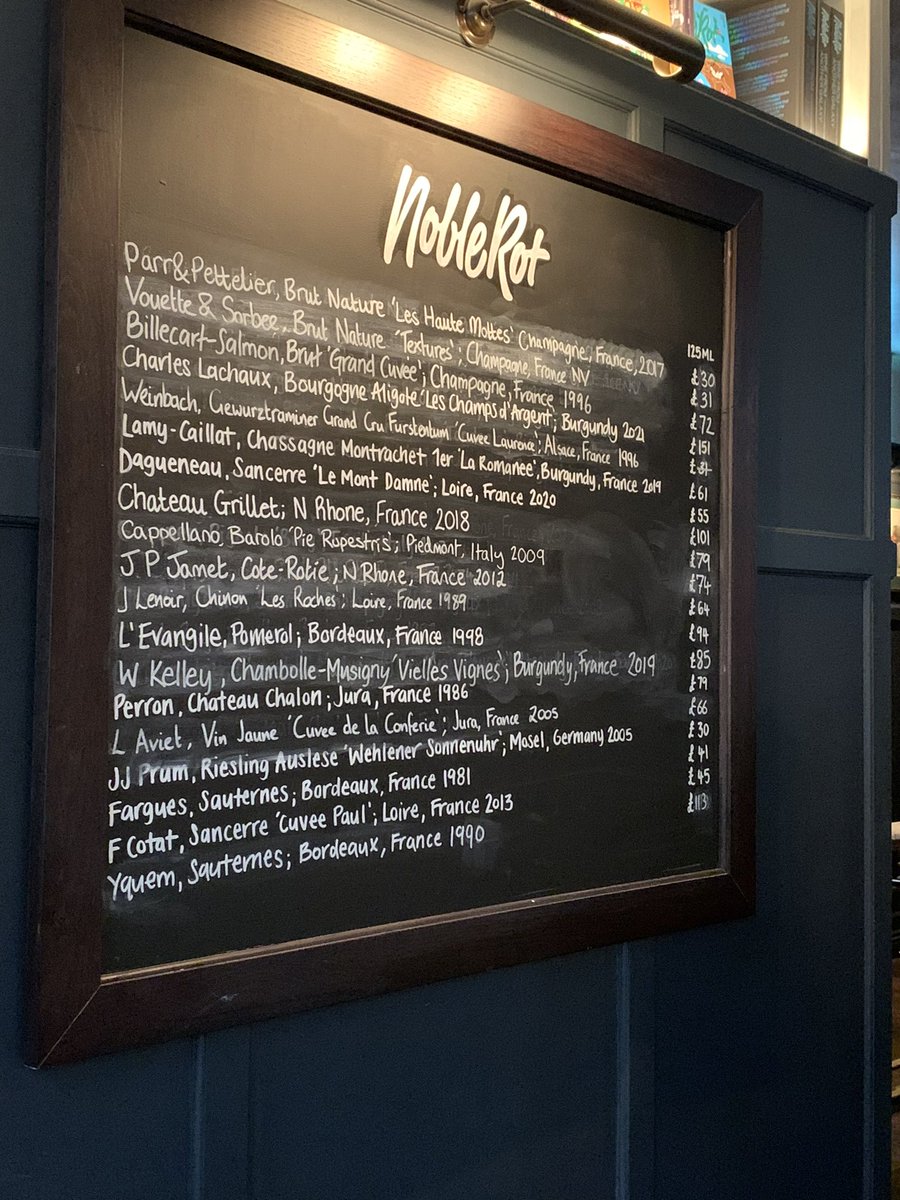 Noble Rot
125ML
Parr & Pettelier, Brut Nature 'Les Haute Mottes' Champagne, France, 2017 £30
Vouette & Sorbee, Brut Nature 'Textures'; Champagne, France NV £31
Billecart-Salmon, Brut 'Grand Cuvée'; Champagne, France 1996 £72
Charles Lachaux, Bourgogne Aligoté 'Les Champs d'Argent; Burgundy 2021 £151
Weinbach, Gewurztraminer Grand Cru Furstentum 'Cuvee Laurence'; Alsace, France 1996 £37
Lamy-Caillat, Chassagne Montrachet 1er 'La Romanée', Burgundy, France 2019 £61
Dagueneau, Sancerre 'Le Mont Damne'; Loire, France 2020 £55
Chateau Grillet; N Rhone, France 2018 £101
Cappellano, Barolo 'Pie Rupestris'; Piedmont, Italy 2009 £79
J P Jamet, Cote-Rotie; N Rhone, France 2012 £74
J Lenoir, Chinon 'Les Roches'; Loire, France 1989 £64
L'Evangile, Pomerol; Bordeaux, France 1998 £94
W Kelley, Chambolle-Musigny 'Vielles Vignes'; Burgundy, France 2019 £85
Perron, Chateau Chalon; Jura, France 1986 £79
L Aviet, Vin Jaune 'Cuvee de la Conferie'; Jura, France 2005 £66
JJ Prum, Riesling Auslese 'Wehlener Sonnenuhr'; Mosel, Germany 2005 £30
Fargues, Sauternes; Bordeaux, France 1981 £41
F Cotat, Sancerre 'Cuvee Paul'; Loire, France 2013 £45
Yquem, Sauternes; Bordeaux, France 1990 £113